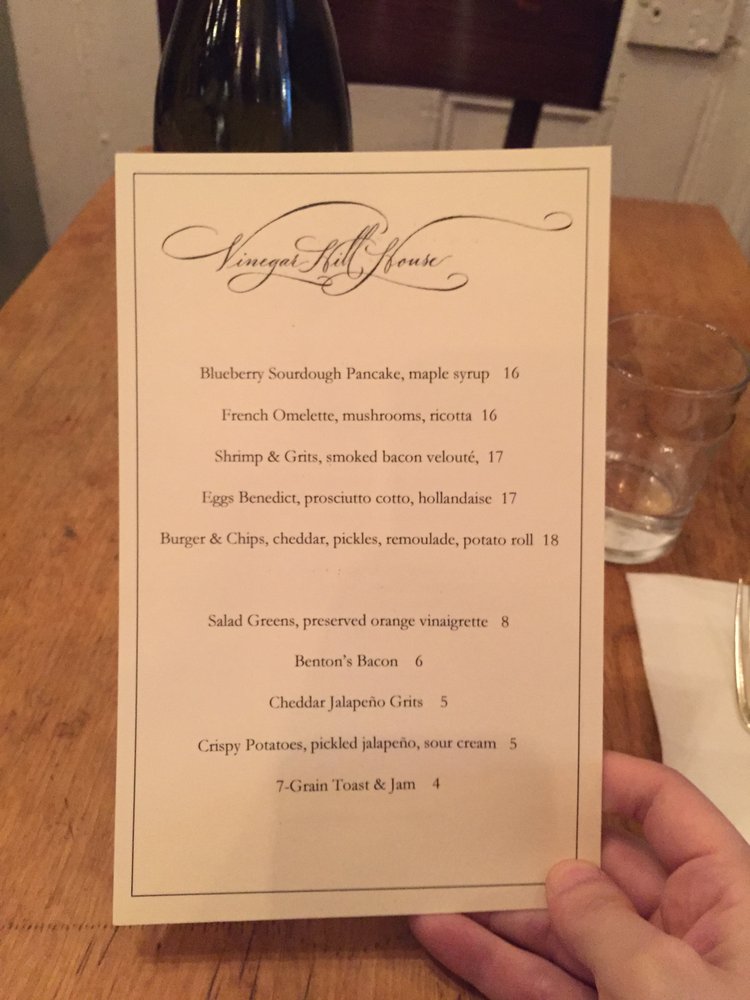 Vinegar Hill House
Blueberry Sourdough Pancake, maple syrup 16
French Omelette, mushrooms, ricotta 16
Shrimp & Grits, smoked bacon velouté, 17
Eggs Benedict, prosciutto cotto, hollandaise 17
Burger & Chips, cheddar, pickles, remoulade, potato roll 18
Salad Greens, preserved orange vinaigrette 8
Benton's Bacon 6
Cheddar Jalapeño Grits 5
Crispy Potatoes, pickled jalapeño, sour cream 5
7-Grain Toast & Jam 4